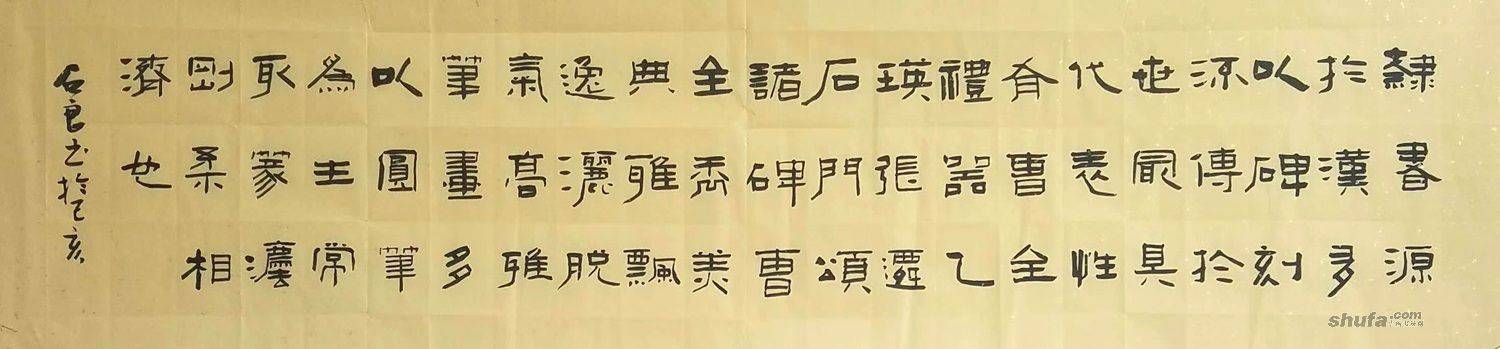 隸書源
於漢多
以碑刻
流傳於
世最具
代表性
有曹全
禮器乙
瑛張遷
石門頌
諸碑曹
全秀美
典雅飄
逸灑脫
氣高雅
筆畫多
以圓筆
為主常
取篆瀍
剛柔相
濟也
石良书於己亥
shufa.com